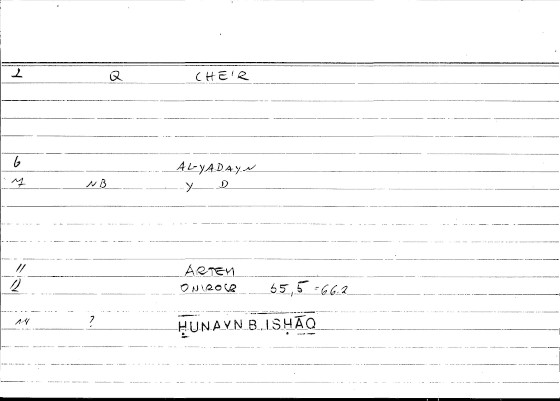 1 Q CHEIR
6 AL-YADAYN
7 NB Y D
11 ARTEM
12 ONIROCR 65,5-66.2
14 ? ḤUNAYN B. ISḤĀQ